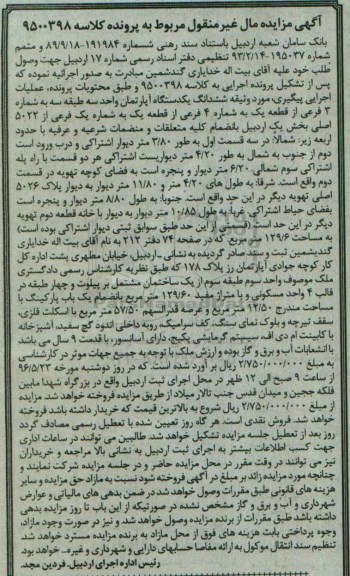 آگهی مزایده مال غیرمنقول مربوط به پرونده کلاسه ۹۵۰۰۳۹۸
بانک سامان شعبه اردبیل باستناد سند رهنی شماره ۱۹۱۹۸۴-۸۹/۹/۱۸ و متمم
شماره ۱۹۵۰۳۷-۹۳/۲/۱۴ تنظیمی دفتر اسناد رسمی شماره ۱۷ اردبیل جهت وصول
طلب خود علیه آقای بیت اله خدایاری گندشمین مبادرت به صدور اجرائیه نموده که
پس از تشکیل پرونده اجرایی به کلاسه ۹۵۰۰۳۹۸ و طبق محتویات پرونده، عملیات
اجرایی پیگیری، مورد وثیقه ششدانگ یکدستگاه آپارتمان واحد سه طبقه سه به شماره
۳ فرعی از قطعه یک به شماره ۴ فرعی از قطعه یک به شماره یک فرعی از ۵۰۲۲
اصلی بخش یک اردبیل بانضمام کلیه متعلقات و منضمات شرعیه و عرفیه با حدود
اربعه زیر: شمالاً: در سه قسمت اول به طول ۳/۸۰ متر دیوار اشتراکی و درب ورود است
دوم از جنوب به شمال به طول ۴/۲۰ متر دیواریست اشتراکی هر دو قسمت با راه پله
اشتراکی سوم شمالی ۶/۲۰ متر دیوار و پنجره است به فضای کوچه تهویه در قسمت
دوم واقع است. شرقاً: به طول های ۴/۲۰ متر و ۱۱/۸۰ متر دیوار به دیوار پلاک ۵۰۲۶
اصلی تهویه دیگر در این حد واقع است. جنوبا: به طول ۸/۸۰ متر دیوار و پنجره است
بفضای حیاط اشتراکی. غربا: به طول ۱۰/۸۵ متر دیوار به دیوار با خانه قطعه دوم تهویه
دیگر در این حد است قسمتی از این حد طبق سوابق ثبتی دیوار اشتراکی بوده است)
به مساحت ۱۲۹/۶ متر مربع. که در صفحه ۷۴ دفتر ۲۱۲ به نام آقای بیت اله خدایاری
گندیشمین ثبت و سند صادر گردیده به نشانی -اردبیل، خیابان مطهری پشت اداره کل
کار کوچه جوادی آپارتمان رز پلاک ۱۷۸ که طبق نظریه کارشناس رسمی دادگستری
ملک موصوف واحد سوم طبقه سوم از یک ساختمان مشتمل بر پیلوت و چهار طبقه در
قالب ۴ واحد مسکونی و با مساحت ۱۲۹/۶۰ متر مربع بانضمام یک باب پارکینگ با
مساحت مندرج ۱۲/۵۰ مترمربع و عرصه قدرالسهم ۵۷/۵۰ متر مربع با اسکلت فلزی،
سقف تیرچه و بلوک نمای سنگ، کف سرامیک، رویه داخلی اندود گچ سفید، آشپزخانه
با کابینت ام دی اف، سیستم گرمایشی پکیج، دارای آسانسور، با قدمت ۹ سال می باشد
با انشعابات آب و برق و گاز بوده و ارزش ملک با توجه به جمیع جهات موثر در کارشناسی
به مبلغ ۲/۷۵۰/۰۰۰/۰۰۰ ریال بر آورد شده است. که در روز دوشنبه مورخه ۹۶/۵/۲۳
از ساعت ۹ صبح الی ۱۲ ظهر در محل اجرای ثبت اردبیل واقع در بزرگراه شهدا مابین
فلکه ججین و میدان قدس جنب تالار میلاد از طریق مزایده فروخته خواهد شد. مزایده
از مبلغ ۲/۷۵۰/۰۰۰/۰۰۰ ریال شروع به بالاترین قیمت که خریدار داشته باشد فروخته
خواهد شد. فروش نقدی است. هر گاه روز تعیین شده با تعطیل رسمی مصادف گردد
روز بعد از تعطیل جلسه مزایده تشکیل خواهد شد. طالبین می توانند در ساعات اداری
جهت کسب اطلاعات بیشتر به اجرای ثبت اردبیل به نشانی بالا مراجعه و خریداران
نیز می توانند در وقت مقرر در محل مزایده حاضر و در جلسه مزایده شرکت نمایند و
چنانچه مورد مزایده زائد بر مبلغ در آگهی فروخته شود نسبت به مازاد حق مزایده و سایر
هزینه های قانونی طبق مقررات وصول خواهد شد در ضمن بدهی های مالیاتی و عوارض
شهرداری و آب و برق و گاز مشخص نشده در صورتیکه از این باب تا روز مزایده بدهی
داشته باشد طبق مقررات از برنده مزایده وصول خواهد شد. و نیز در صورت وجود مازاد،
وجوه پرداختی بابت هزینه های فوق از محل مازاد به برنده مزایده مسترد خواهد شد
تنظیم سند انتقال موکول به ارائه مفاصا حسابهای دارایی و شهرداری و غیره... خواهد بود.
رئیس اداره اجرای اردبیل. فردین مجد.